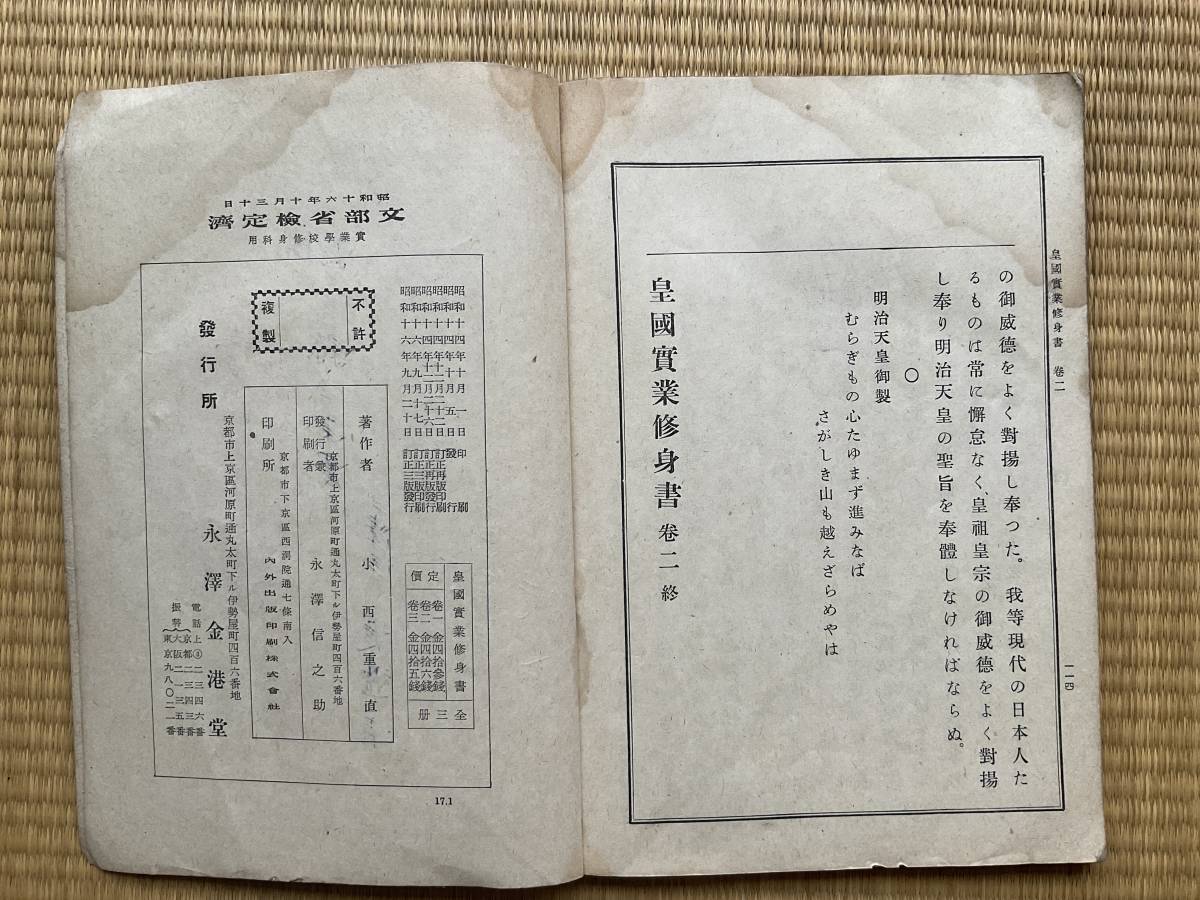 皇國實業修身書 卷二
一一四
の御威德をよく對揚し奉つた。我等現代の日本人た
るものは常に懈怠なく、皇祖皇宗の御威德をよく對揚
し奉り明治天皇の聖旨を奉體しなければならぬ。
〇
明治天皇御製
むらぎもの心たゆまず進みなば
さがしき山も越えざらめやは
皇國實業修身書 卷二 終
日十三月十年六十和昭
濟定檢省部文
用科身修校學業實
昭和十四年十月一日印刷
昭和十四年十月五日發行
昭和十四年十二月二十二日訂正再版印刷
昭和十四年十二月二十六日訂正再版發行
昭和十六年九月十七日訂正三版印刷
昭和十六年九月二十日訂正三版發行
不許
複製
皇國實業修身書 全三册
定價
卷一 金四拾參錢
卷二 金四拾六錢
卷三 金四拾五錢
著作者 小西重直
京都市上京區河原町通丸太町下ル伊勢屋町四百六番地
發行兼印刷者 永澤信之助
京都市下京區西洞院通七條南入
印刷所 內外出版印刷株式會社
京都市上京區河原町通丸太町下ル伊勢屋町四百六番地
發行所 永澤金港堂
17.1